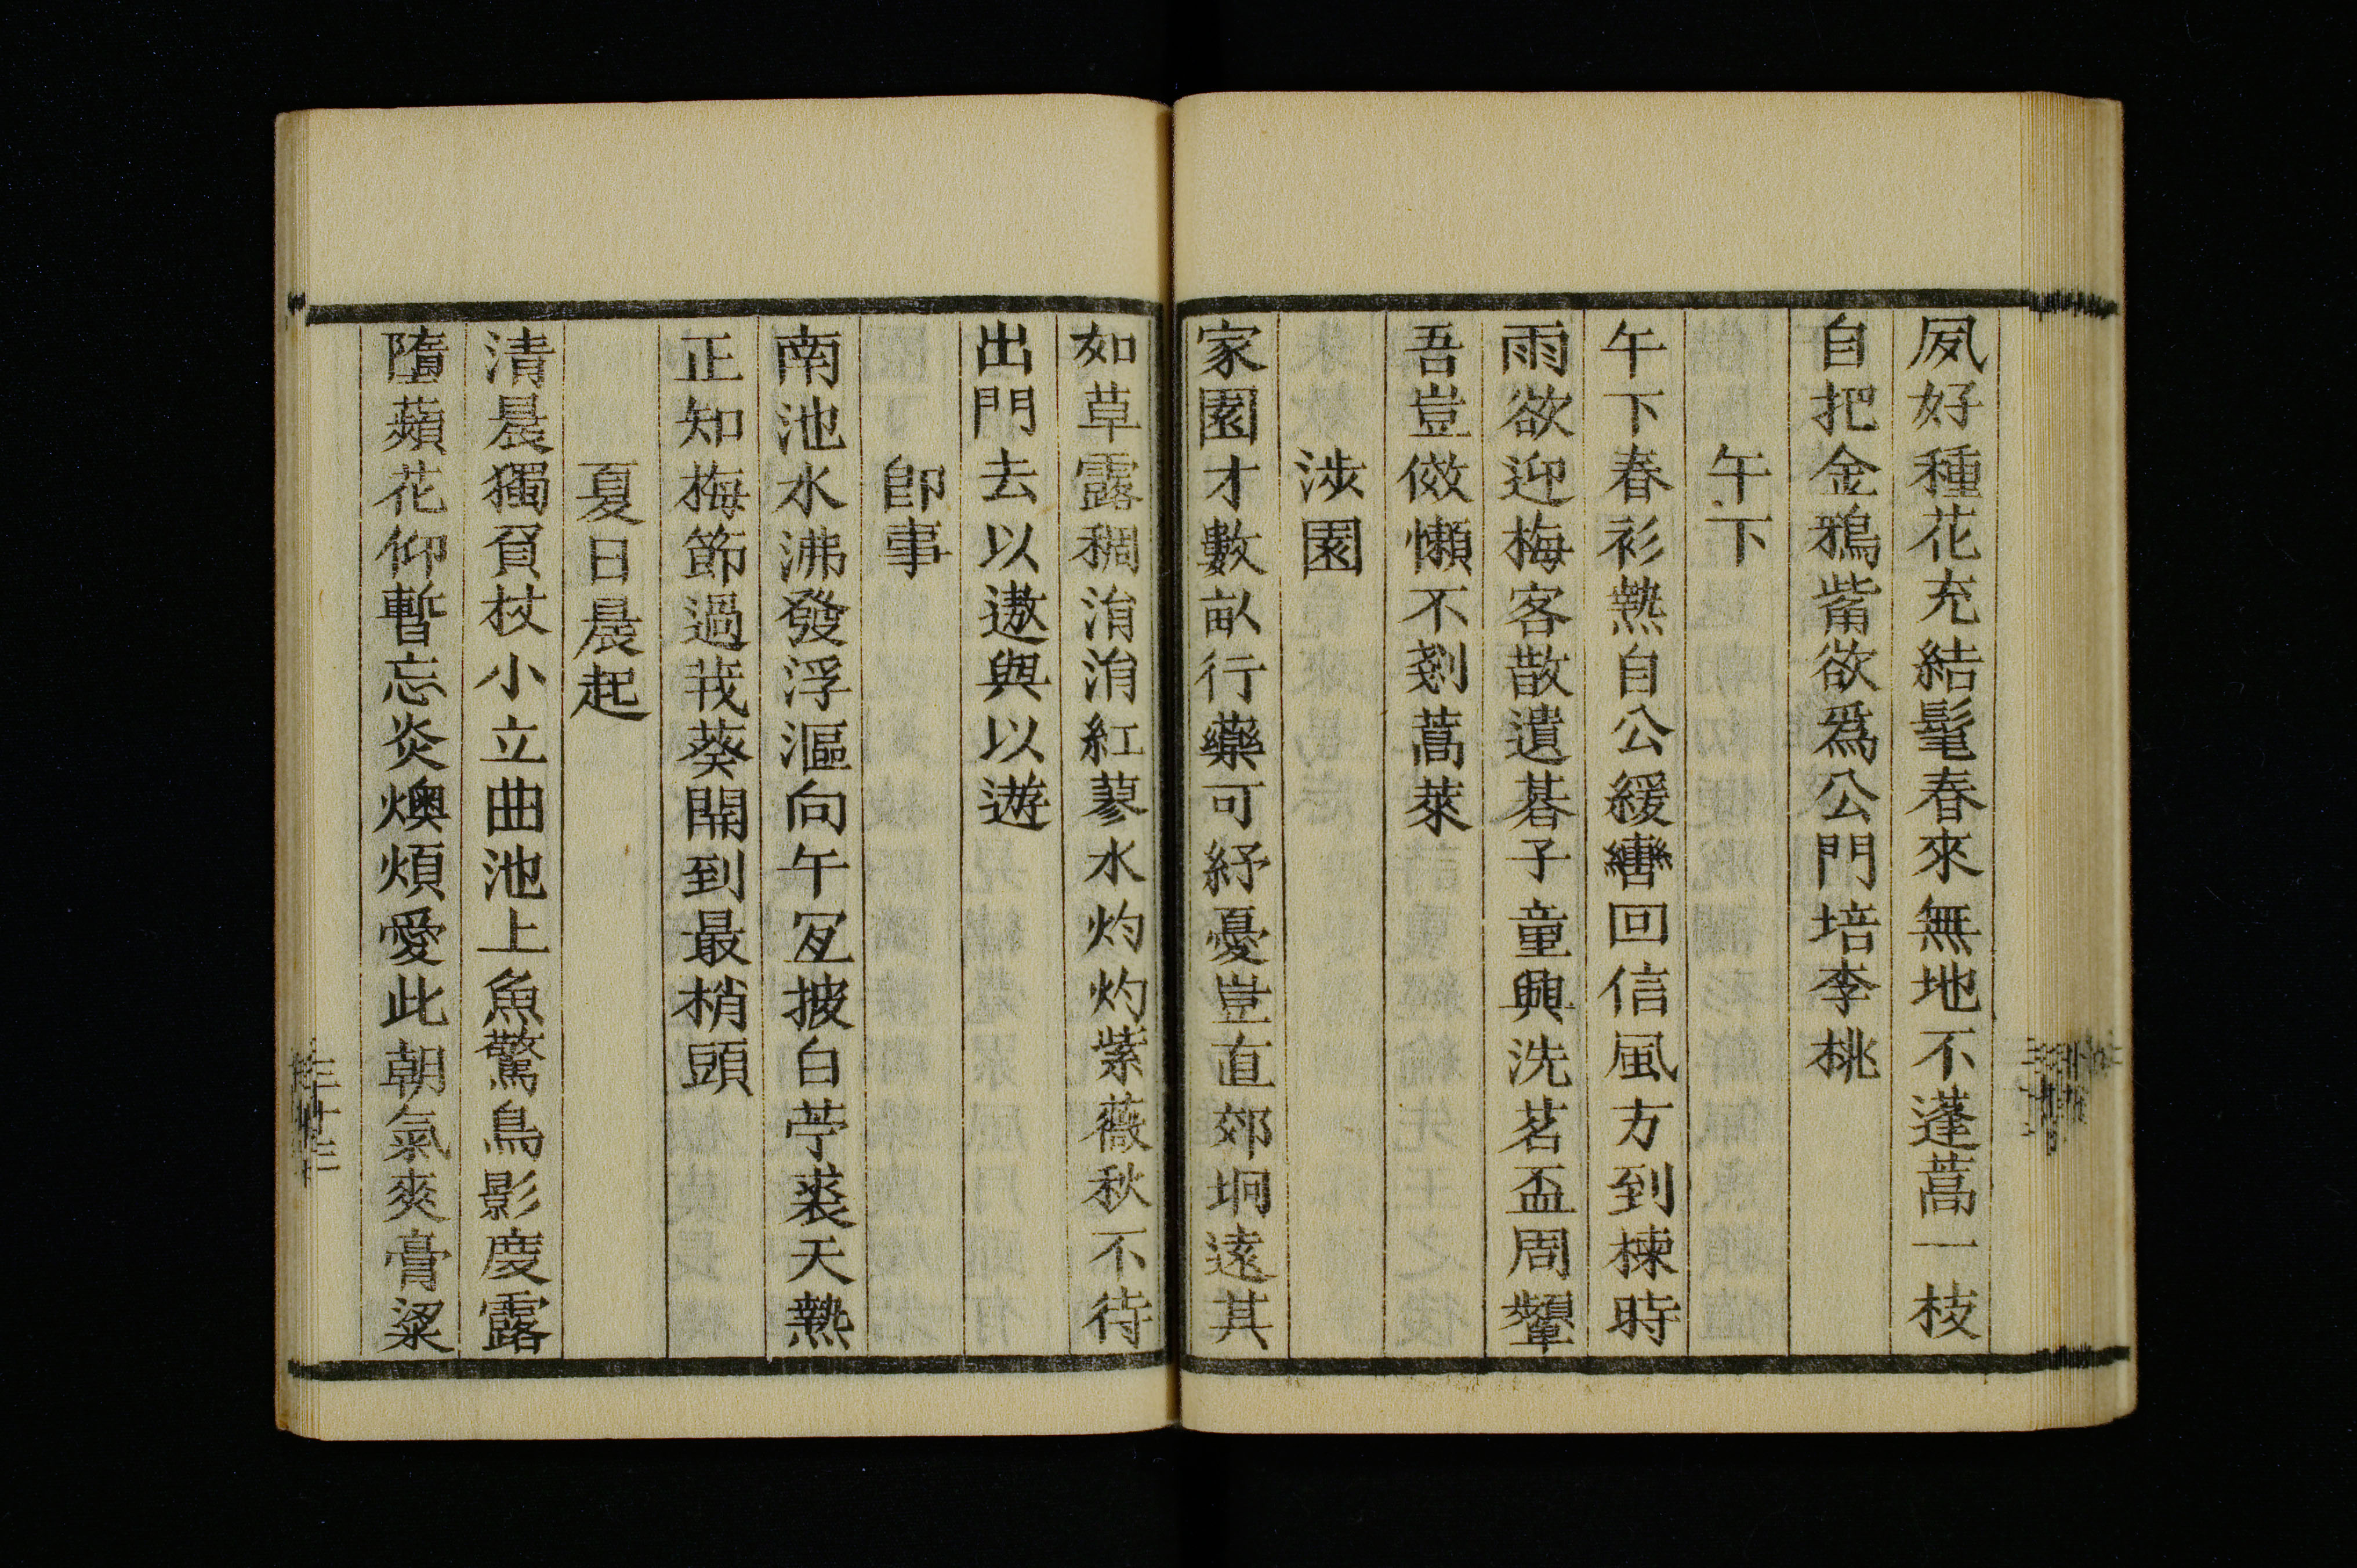 夙好種花充結髦春來無地不蓬蒿一枝
自把金鴉觜欲爲公門培李桃
午下
午下春衫熱自公緩轡回信風方到楝時
雨欲迎梅客散遺碁子童興洗茗盃周顰
吾豈傚懶不剗蒿萊
涉園
家園才數畝行藥可紓憂豈直郊坰遠其
如草露稠涓涓紅蓼水灼灼紫薇秋不待
出門去以遨與以遊
卽事
南池水沸發浮漚向午冝披白苧裘天熱
正知梅節過莪葵開到最梢頭
夏日晨起
清晨獨負杖小立曲池上魚驚鳥影度露
墮蘋花仰暫忘炎燠煩愛此朝氣爽膏粱
三十三